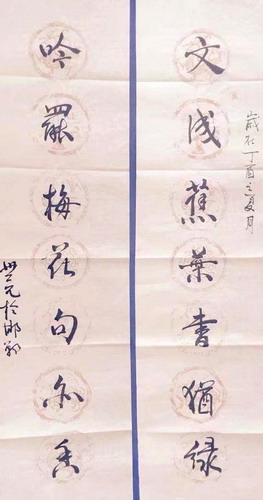 歲在丁酉之夏月
文成蕉葉書猶綠
吟罷梅花句亦香
元於邯鄲